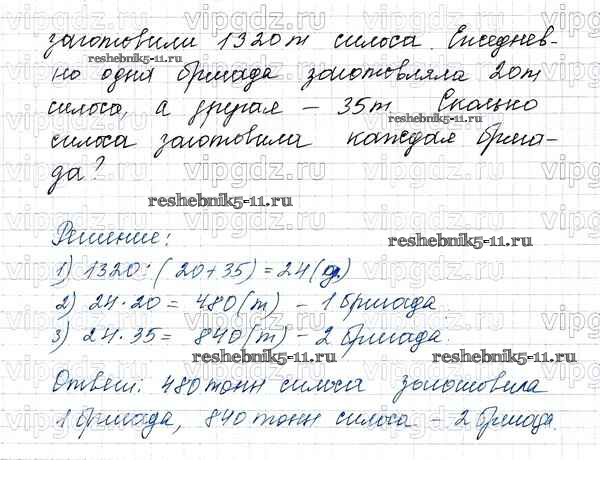 заготовили 1320 т силоса. Ежеднев-
но одна бригада заготовляла 20т
силоса, а другая – 35т. Сколько
силоса заготовила каждая брига-
да?
Решение:
1) 1320 : (20+35) = 24 (д.)
2) 24 · 20 = 480 (т) – 1 бригада.
3) 24 · 35 = 840 (т) – 2 бригада.
Ответ: 480 тонн силоса заготовила
1 бригада, 840 тонн силоса – 2 бригада.
vipgdz.ru
reshebnik5-11.ru